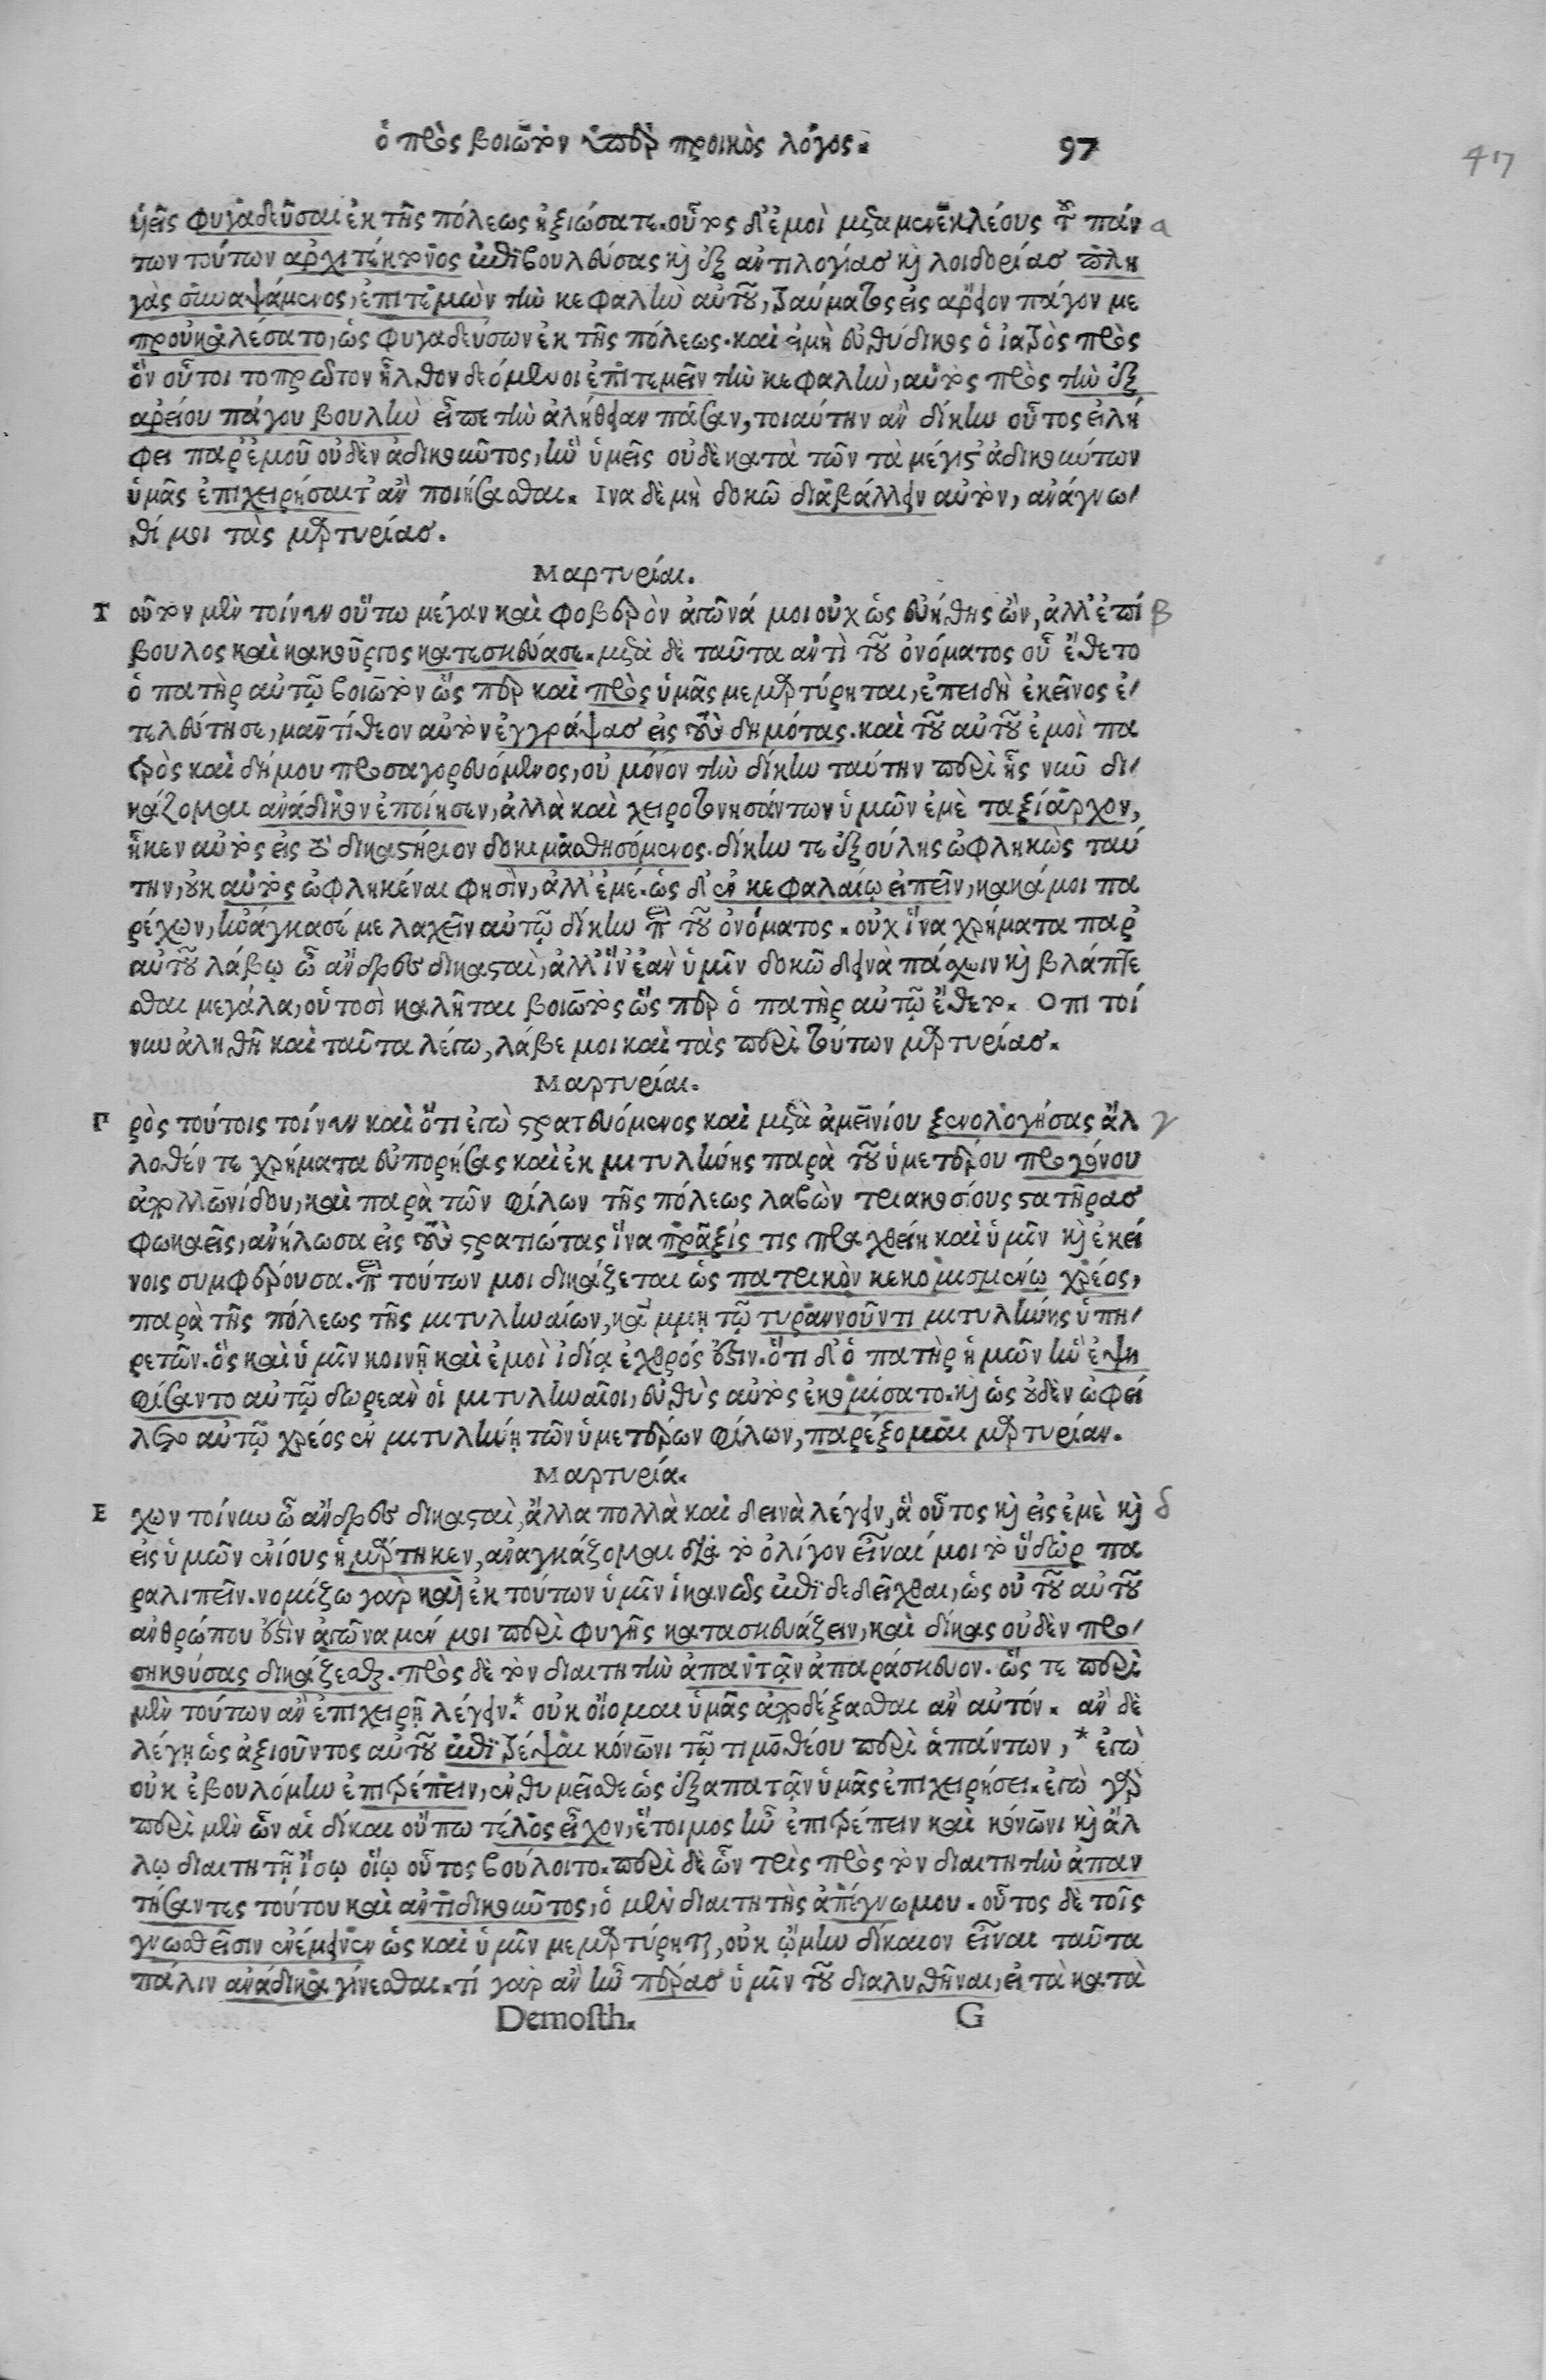 ὁ πρὸς βοιωτὸν ὑπὲρ προικὸς λόγος. 97
417
ὑμεῖς φυγαδεῦσαι ἐκ τῆς πόλεως ἠξιώσατε. οὗτος δ' ἐμοὶ μετὰ μενεκλέους τοῦ πάν a
των τούτων ἀρχιτέκτονος ἐπιβουλεύσας καὶ ἐξ ἀντιλογίας καὶ λοιδορίας πλη
γὰς συναψάμενος, ἐπιτεμὼν τὴν κεφαλὴν αὑτοῦ, τραύματος εἰς ἄρειον πάγον με
προὐκαλέσατο, ὡς φυγαδεύσων ἐκ τῆς πόλεως. καὶ εἰ μὴ εὐθύδικος ὁ ἰατρὸς πρὸς
ὃν οὗτοι τοπρῶτον ἦλθον δεόμενοι ἐπιτεμεῖν τὴν κεφαλὴν, αὐτὸς πρὸς τὴν ἐξ
ἀρείου πάγου βουλὴν εἶπε τὴν ἀλήθειαν πᾶσαν, τοιαύτην ἂν δίκην οὗτος εἰλή
φει παρ' ἐμοῦ οὐδὲν ἀδικοῦντος, ἣν ὑμεῖς οὐδὲ κατὰ τῶν τὰ μέγιστ' ἀδικούντων
ὑμᾶς ἐπιχειρήσαιτ' ἂν ποιήσασθαι. Ινα δὲ μὴ δοκῶ διαβάλλειν αὐτὸν, ἀνάγνω/
θί μοι τὰς μαρτυρίας.
Μαρτυρίαι.
Τ οῦτον μὲν τοίνυν οὕτω μέγαν καὶ φοβερὸν ἀγῶνά μοι οὐχ ὡς εὐήθης ὢν, ἀλλ' ἐπί β
βουλος καὶ κακοῦργος κατεσκεύασε. μετὰ δὲ ταῦτα ἀντὶ τοῦ ὀνόματος οὗ ἔθετο
ὁ πατὴρ αὐτῷ βοιωτὸν ὥς περ καὶ πρὸς ὑμᾶς μεμαρτύρηται, ἐπειδὴ ἐκεῖνος ἐ/
τελεύτησε, μαντίθεον αὑτὸν ἐγγράψας εἰς τοὺς δημότας. καὶ τοῦ αὐτοῦ ἐμοὶ πα
τρὸς καὶ δήμου προσαγορευόμενος, οὐ μόνον τὴν δίκην ταύτην περὶ ἧς νῦν δι/
κάζομαι ἀνάδικον ἐποίησεν, ἀλλὰ καὶ χειροτονησάντων ὑμῶν ἐμὲ ταξίαρχον,
ἧκεν αὐτὸς εἰς τὸ δικαστήριον δοκιμασθησόμενος. δίκην τε ἐξούλης ὠφληκὼς ταύ
την, οὐκ αὐτὸς ὠφληκέναι φησὶν, ἀλλ' ἐμέ. ὡς δ' ἐν κεφαλαίῳ εἰπεῖν, κακά μοι πα
ρέχων, ἠνάγκασέ με λαχεῖν αὐτῷ δίκην περὶ τοῦ ὀνόματος. οὐχ ἵνα χρήματα παρ'
αὐτοῦ λάβω ὦ ἄνδρες δικασταὶ, ἀλλ' ἵν' ἐὰν ὑμῖν δοκῶ δεινὰ πάσχειν καὶ βλάπτε
σθαι μεγάλα, οὑτοσὶ καλῆται βοιωτὸς ὥς περ ὁ πατὴρ αὐτῷ ἔθετο. Οτι τοί
νυν ἀληθῆ καὶ ταῦτα λέγω, λάβε μοι καὶ τὰς περὶ τούτων μαρτυρίας.
Μαρτυρίαι.
Π ρὸς τούτοις τοίνυν καὶ ὅτι ἐγὼ στρατευόμενος καὶ μετὰ ἀμεινίου ξενολογήσας ἄλ γ
λοθέν τε χρήματα εὐπορήσας καὶ ἐκ μιτυλήνης παρὰ τοῦ ὑμετέρου προξένου
ἀπολλωνίδου, καὶ παρὰ τῶν φίλων τῆς πόλεως λαβὼν τριακοσίους στατῆρας
φωκαεῖς, ἀνήλωσα εἰς τοὺς στρατιώτας ἵνα πρᾶξίς τις πραχθείη καὶ ὑμῖν καὶ ἐκεί
νοις συμφέρουσα. περὶ τούτων μοι δικάζεται ὡς πατρικὸν κεκομισμένῳ χρέος,
παρὰ τῆς πόλεως τῆς μιτυληναίων, κάμμῃ τῷ τυραννοῦντι μιτυλήνης ὑπη/
ρετῶν. ὃς καὶ ὑμῖν κοινῇ καὶ ἐμοὶ ἰδίᾳ ἐχθρός ἐστιν. ὅτι δ' ὁ πατὴρ ἡμῶν ἣν ἐψη
φίσαντο αὐτῷ δωρεὰν οἱ μιτυληναῖοι, εὐθὺς αὐτὸς ἐκομίσατο. καὶ ὡς οὐδὲν ὠφεί
λετο αὐτῷ χρέος ἐν μιτυλήνῃ τῶν ὑμετέρων φίλων, παρέξομαι μαρτυρίαν.
Μαρτυρία.
Ε χων τοίνυν ὦ ἄνδρες δικασταὶ, ἄλλα πολλὰ καὶ δεινὰ λέγειν, ἃ οὗτος καὶ εἰς ἐμὲ καὶ δ
εἰς ὑμῶν ἐνίους ἡμάρτηκεν, ἀναγκάζομαι διὰ τὸ ὀλίγον εἶναί μοι τὸ ὕδωρ πα
ραλιπεῖν. νομίζω γὰρ καὶ ἐκ τούτων ὑμῖν ἱκανῶς ἐπιδεδεῖχθαι, ὡς οὐ τοῦ αὐτοῦ
ἀνθρώπου ἐστὶν ἀγῶνα μέν μοι περὶ φυγῆς κατασκευάζειν, καὶ δίκας οὐδὲν προ/
σηκούσας δικάζεσθαι. πρὸς δὲ τὸν διαιτητὴν ἀπαντᾷν ἀπαράσκευον. ὥς τε περὶ
μὲν τούτων ἂν ἐπιχειρῇ λέγειν.* οὐκ οἴομαι ὑμᾶς ἀποδέξασθαι ἂν αὐτόν. ἂν δὲ
λέγῃ ὡς ἀξιοῦντος αὐτοῦ ἐπιτρέψαι κόνωνι τῷ τιμοθέου περὶ ἁπάντων, * ἐγὼ
οὐκ ἐβουλόμην ἐπιτρέπειν, ἐνθυμεῖσθε ὡς ἐξαπατᾷν ὑμᾶς ἐπιχειρήσει. ἐγὼ γὰρ
περὶ μὲν ὧν αἱ δίκαι οὔπω τέλος εἶχον, ἕτοιμος ἦν ἐπιτρέπειν καὶ κόνωνι καὶ ἄλ
λῳ διαιτητῇ ἴσῳ οἵῳ οὗτος βούλοιτο. περὶ δὲ ὧν τρὶς πρὸς τὸν διαιτητὴν ἀπαν
τήσαντες τούτου καὶ ἀντιδικοῦντος, ὁ μὲν διαιτητὴς ἀπέγνω μου. οὗτος δὲ τοῖς
γνωσθεῖσιν ἐνέμεινεν ὡς καὶ ὑμῖν μεμαρτύρηται, οὐκ ᾤμην δίκαιον εἶναι ταῦτα
πάλιν ἀνάδικα γίνεσθαι. τί γὰρ ἂν ἦν πέρας ὑμῖν τοῦ διαλυθῆναι, εἰ τὰ κατὰ
Demosth. G